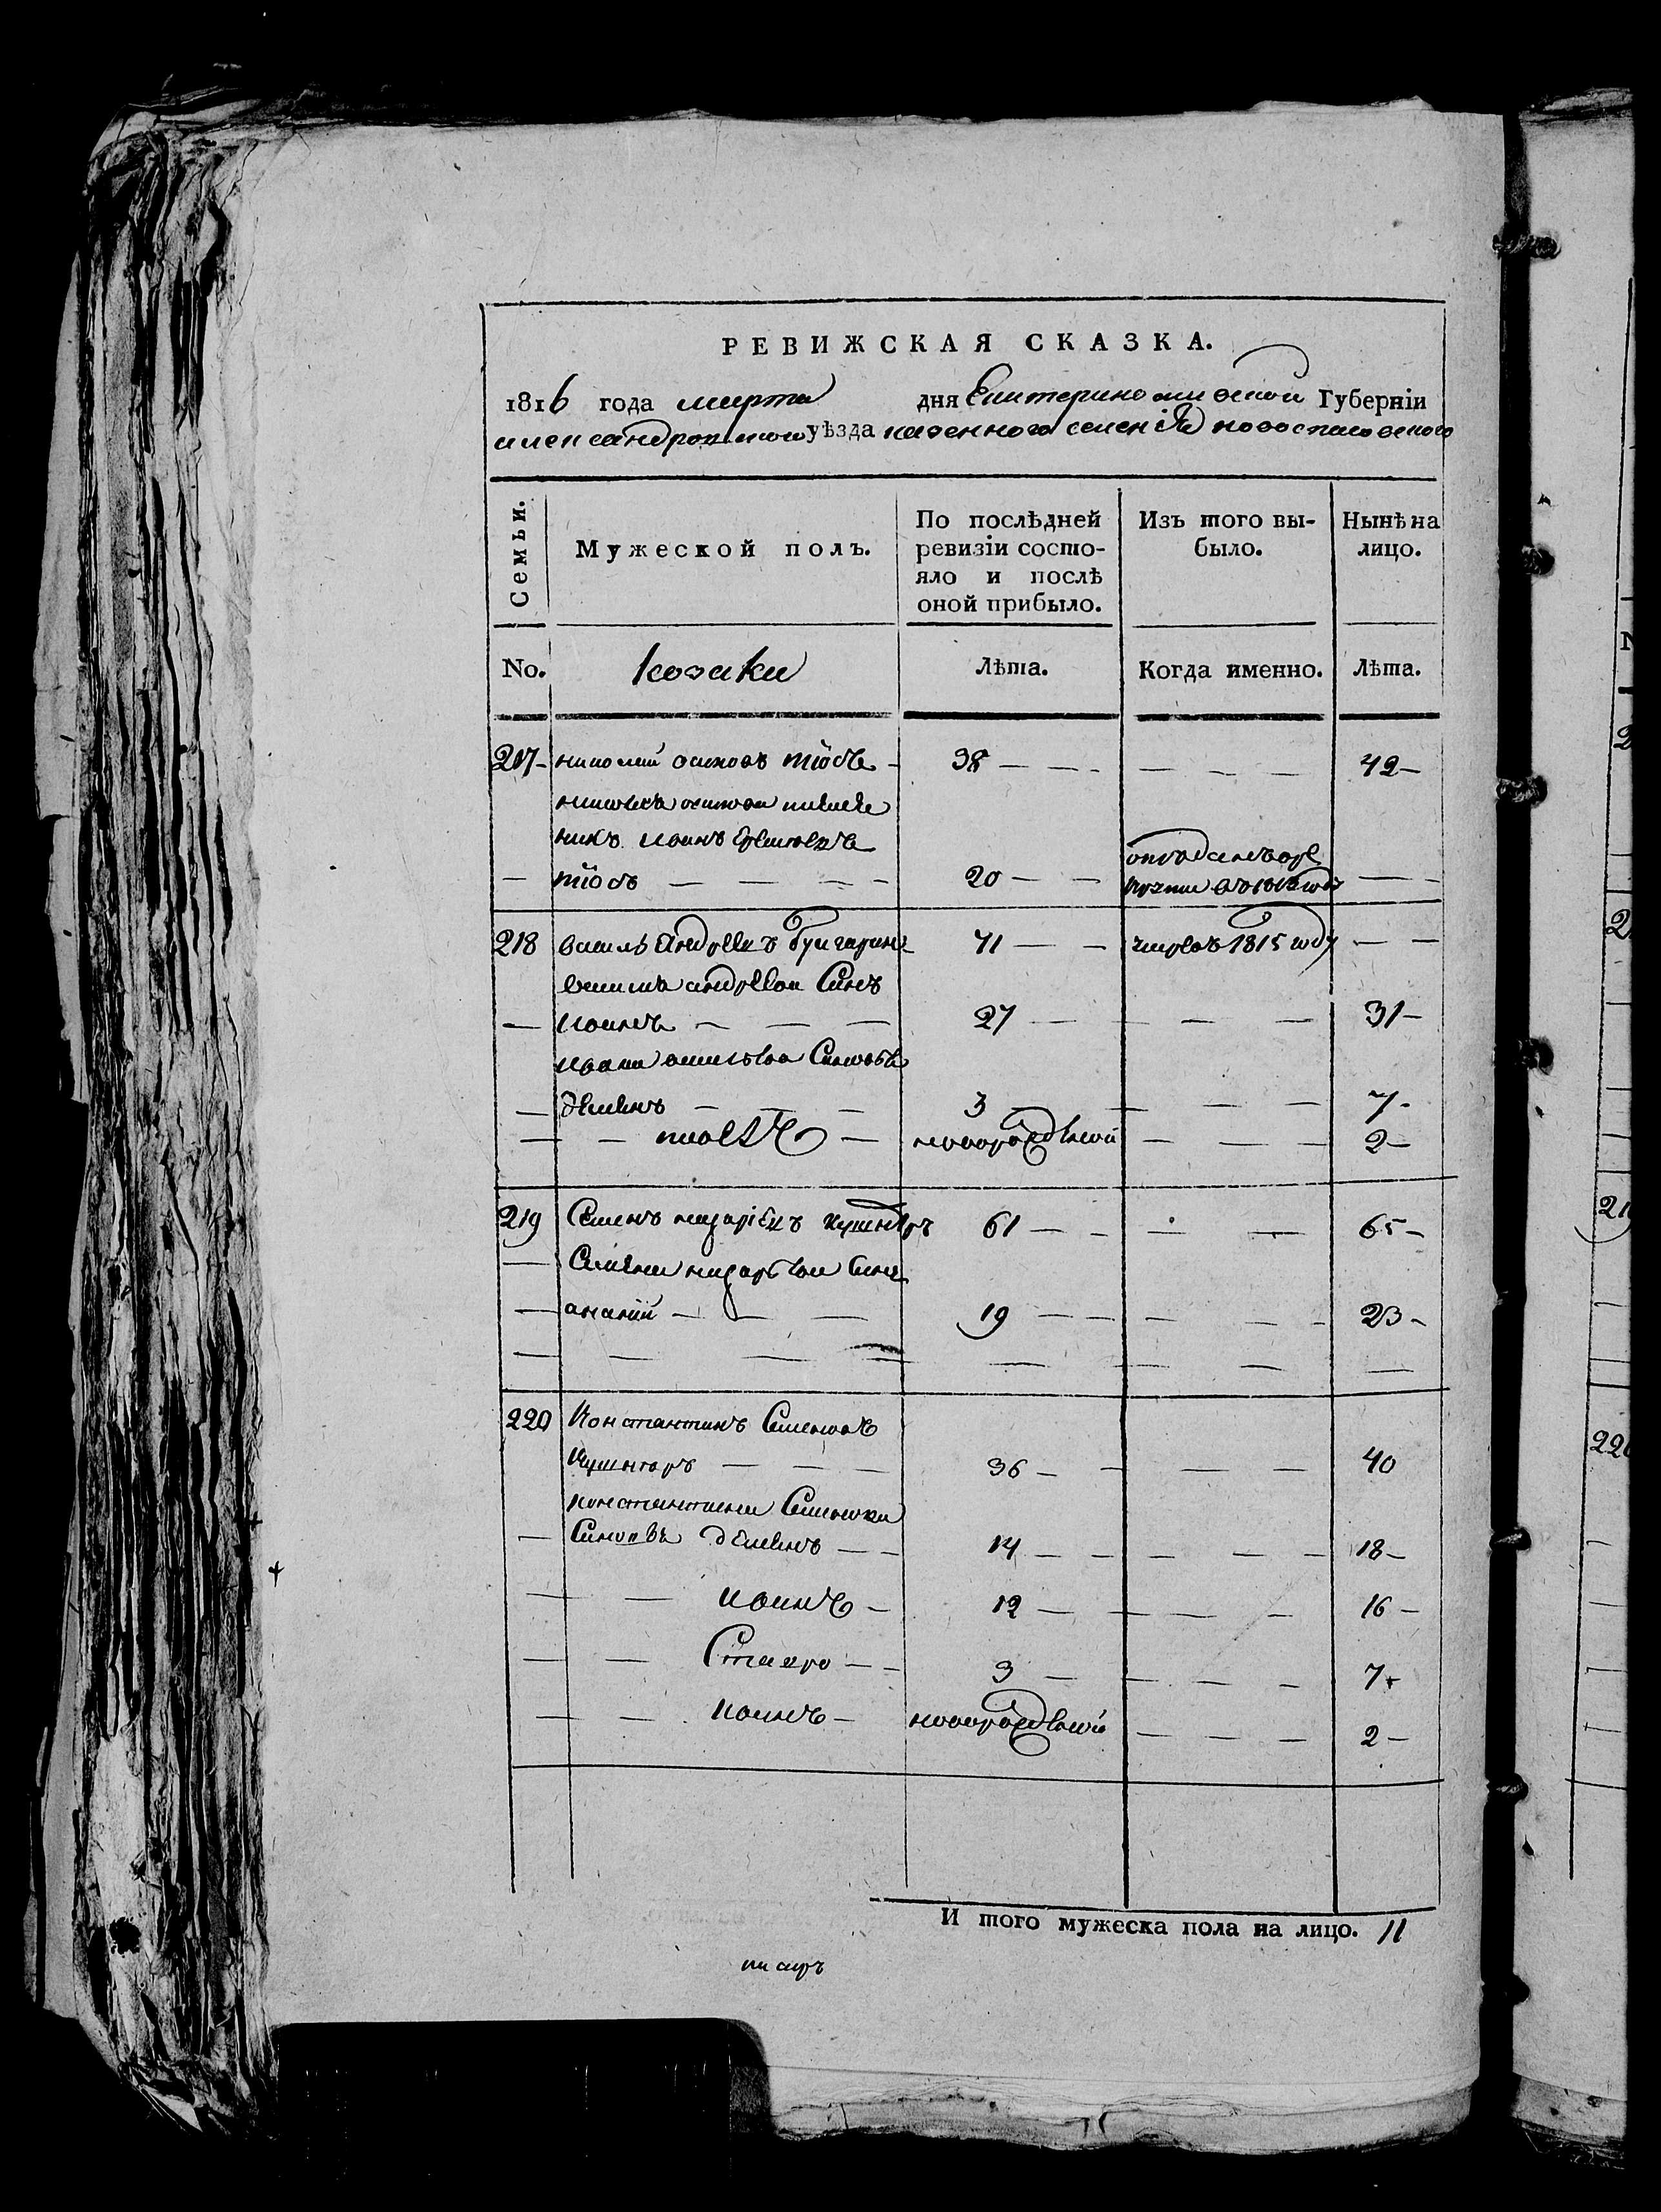 РЕВИЖСКАЯ СКАЗКА.
1816 года марта дня Екатеринославской Губерніи
александровского уѣзда казенного селенія новоспасовского
Семьи. Мужеской полъ. По послѣдней ревизіи состояло и послѣ оной прибыло. Изъ того выбыло. Нынѣ на лицо.
No. козаки Лѣта. Когда именно. Лѣта.
217 николай осиповъ 38 42
николая осипова племен
никъ иванъ
20 отданъ въ ре
круты въ 1813 году
218 василь андреевъ булгаринъ 71 умре въ 1815 году
василя андреева Синъ
иванъ 27 31
ивана васильева Синовъя
деменъ 3 7
новорожденной 2
219 Семенъ назаріевъ кушнѣръ 61 65
Семена назарьева Синъ
ананій 19 23
220 Константинъ Семеновъ
Кушниръ 36 40
константина Семенова
Синовъя деменъ 14 18
иванъ 12 16
Ставро 3 7
иванъ новорожденной 2
И того мужеска пола на лицо. 11
писаръ